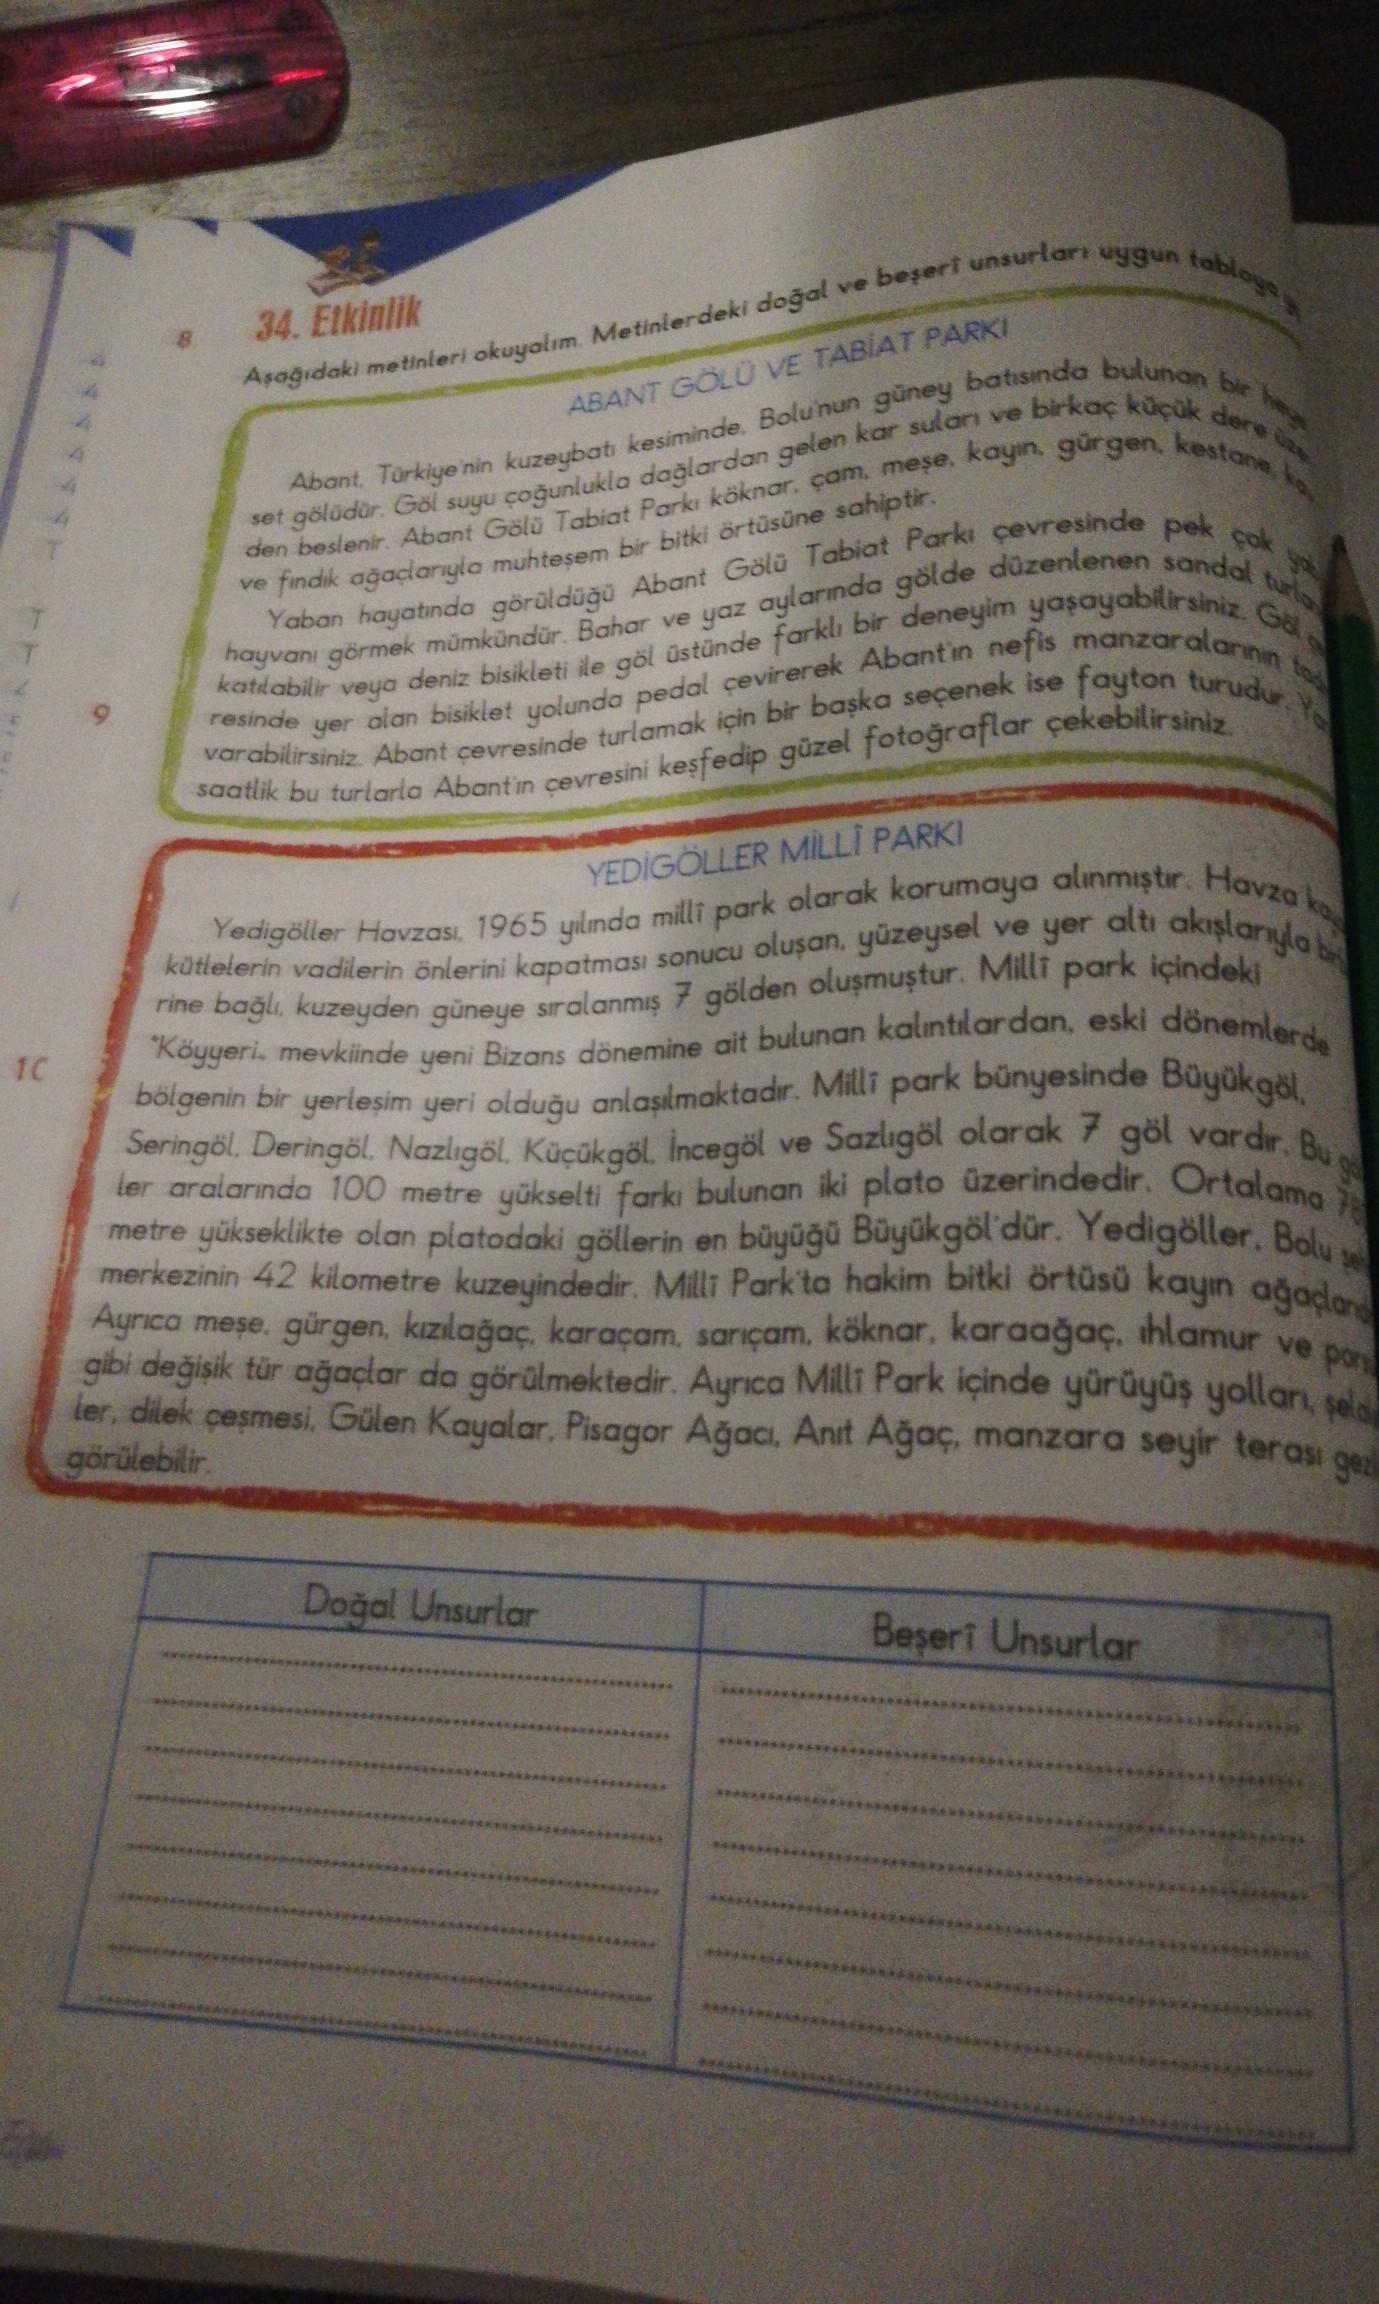 8
34. Etkinlik
Aşağıdaki metinleri okuyalım. Metinlerdeki doğal ve beşerî unsurları uygun tabloya
ABANT GÖLÜ VE TABİAT PARKI
Abant, Türkiye'nin kuzeybatı kesiminde, Bolu'nun güney batısında bulunan bir
set gölüdür. Göl suyu çoğunlukla dağlardan gelen kar suları ve birkaç küçük dere
den beslenir. Abant Gölü Tabiat Parkı köknar, çam, meşe, kayın, gürgen, kestane,
ve fındık ağaçlarıyla muhteşem bir bitki örtüsüne sahiptir.
Yaban hayatında görüldüğü Abant Gölü Tabiat Parkı çevresinde pek çok
hayvanı görmek mümkündür. Bahar ve yaz aylarında gölde düzenlenen sandal
katılabilir veya deniz bisikleti ile göl üstünde farklı bir deneyim yaşayabilirsiniz. Göl
resinde yer alan bisiklet yolunda pedal çevirerek Abant'ın nefis manzaralarının
9
varabilirsiniz. Abant çevresinde turlamak için bir başka seçenek ise fayton turudur.
saatlik bu turlarla Abant'ın çevresini keşfedip güzel fotoğraflar çekebilirsiniz.
YEDİGÖLLER MİLLÎ PARKI
Yedigöller Havzası, 1965 yılında millî park olarak korumaya alınmıştır. Havza
kütlelerin vadilerin önlerini kapatması sonucu oluşan, yüzeysel ve yer altı akışlarıyla
rine bağlı, kuzeyden güneye sıralanmış 7 gölden oluşmuştur. Millî park içindeki
10
"Köyyeri" mevkiinde yeni Bizans dönemine ait bulunan kalıntılardan, eski dönemlerde
bölgenin bir yerleşim yeri olduğu anlaşılmaktadır. Millî park bünyesinde Büyükgöl,
Seringöl, Deringöl, Nazlıgöl, Küçükgöl, İncegöl ve Sazlıgöl olarak 7 göl vardır. Bu
ler aralarında 100 metre yükselti farkı bulunan iki plato üzerindedir. Ortalama
metre yükseklikte olan platodaki göllerin en büyüğü Büyükgöl'dür. Yedigöller, Bolu
merkezinin 42 kilometre kuzeyindedir. Millî Park'ta hakim bitki örtüsü kayın
Ayrıca meşe, gürgen, kızılağaç, karaçam, sarıçam, köknar, karaağaç, ıhlamur ve
gibi değişik tür ağaçlar da görülmektedir. Ayrıca Millî Park içinde yürüyüş yolları,
ler, dilek çeşmesi, Gülen Kayalar, Pisagor Ağacı, Anıt Ağaç, manzara seyir terası
görülebilir.
Doğal Unsurlar
Beşerî Unsurlar